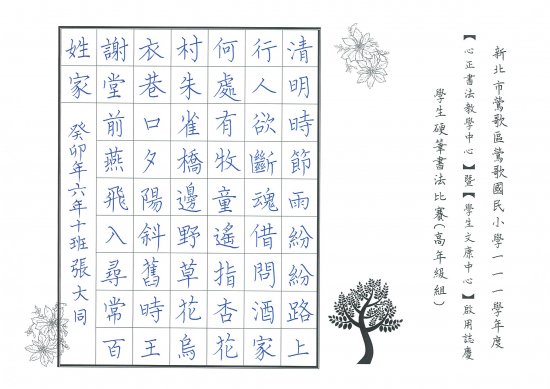 新北市鶯歌區鶯歌國民小學一一一學年度
【心正書法教學中心】暨【學生文康中心】啟用誌慶
學生硬筆書法比賽(高年級組)
清明時節雨紛紛路上
行人欲斷魂借問酒家
何處有牧童遙指杏花
村朱雀橋邊野草花烏
衣巷口夕陽斜舊時王
謝堂前燕飛入尋常百
姓家 癸卯年六年十班張大同